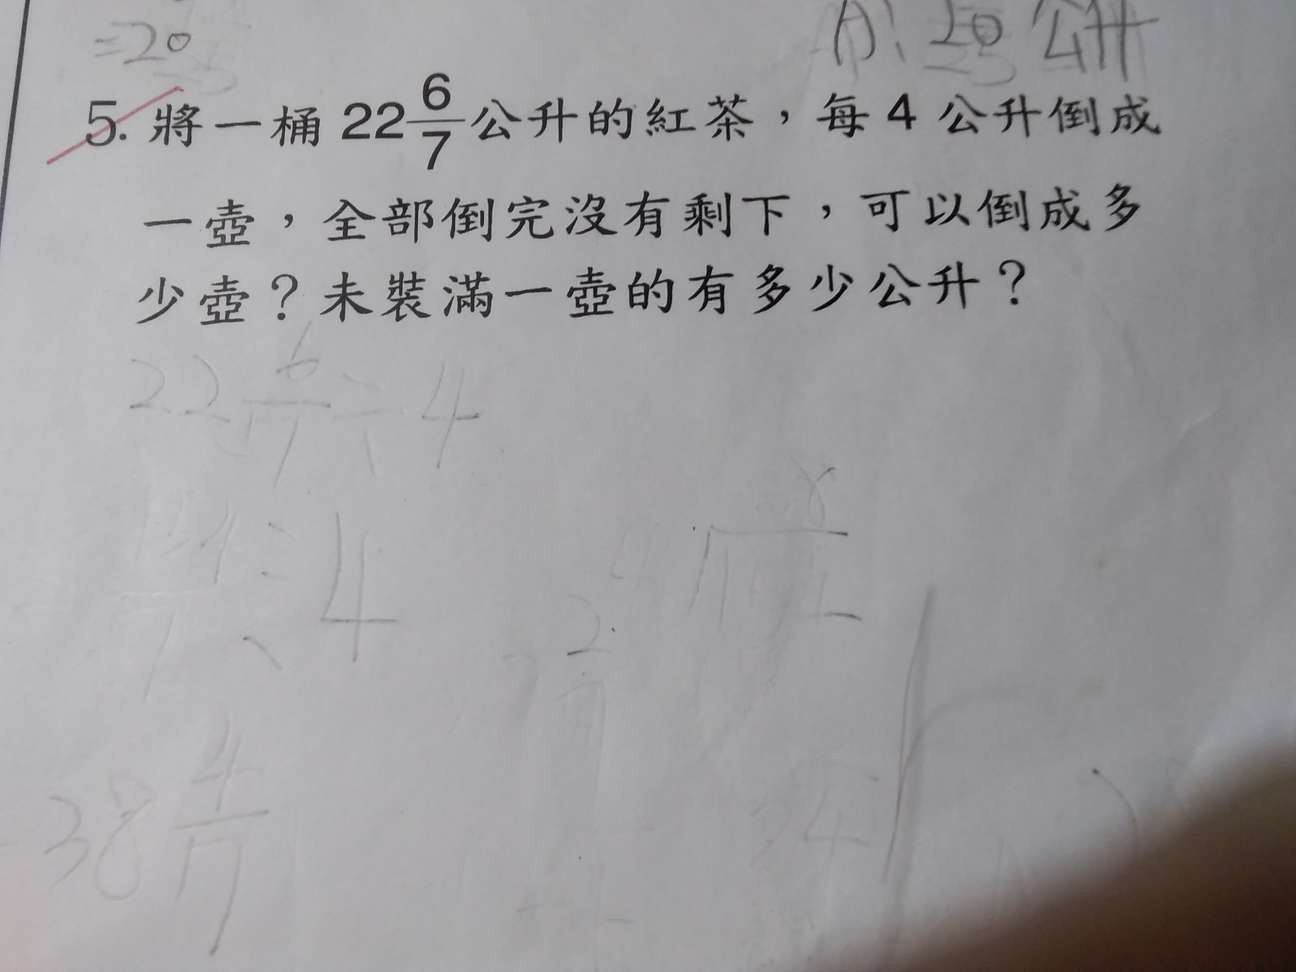 =20
A: 20 公升
5. 將一桶 22 6/7 公升的紅茶，每 4 公升倒成
一壺，全部倒完沒有剩下，可以倒成多
少壺？未裝滿一壺的有多少公升？
22 6/7 ÷ 4
÷ 4
38 4/7